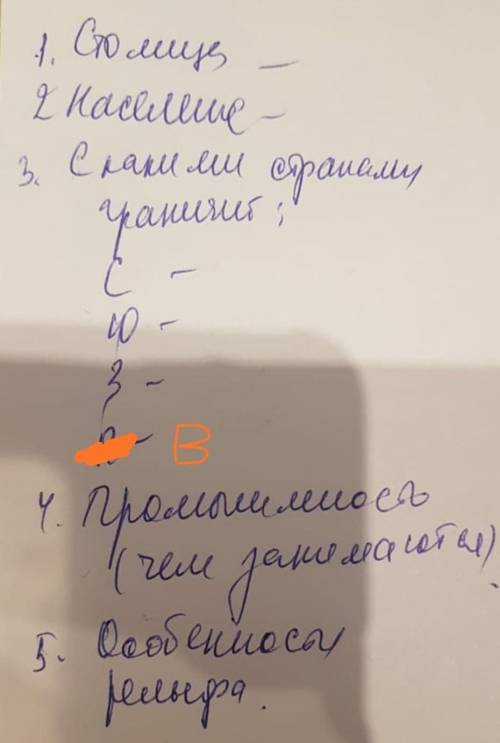 1. Столица –
2 Население –
3. С какими странами
граничит:
С –
Ю –
З –
– В
4. Промышленность
(чем занимаются)
5. Особенности
рельефа.